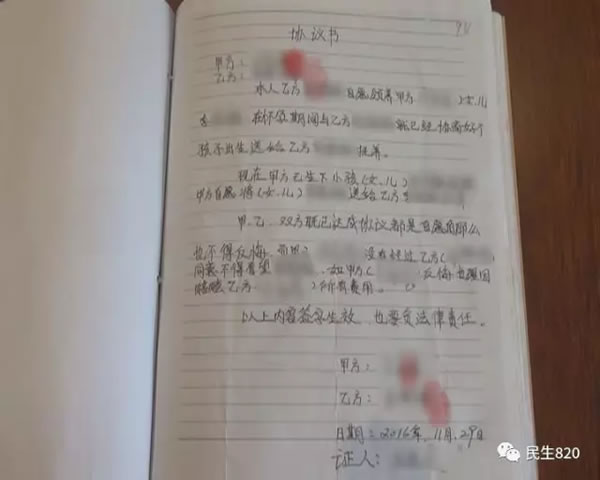 协议书
甲方：
乙方：
本人乙方 自愿领养甲方 女儿
在怀孕期间与乙方 就已经协商好了
孩子出生送给乙方 抚养。
现在甲方已生下小孩（女儿）
甲方自愿将（女儿） 送给乙方
甲、乙、双方既已达成协议都是自愿的那么
也不得反悔，而甲 没有经过乙方（
同意不得看望 如甲方（ 反悔也须
赔赔乙方 ）所有费用。
以上内容签字生效，也要负法律责任。
甲方：
乙方：
日期：2016年，11月，29日
证人：
民生820